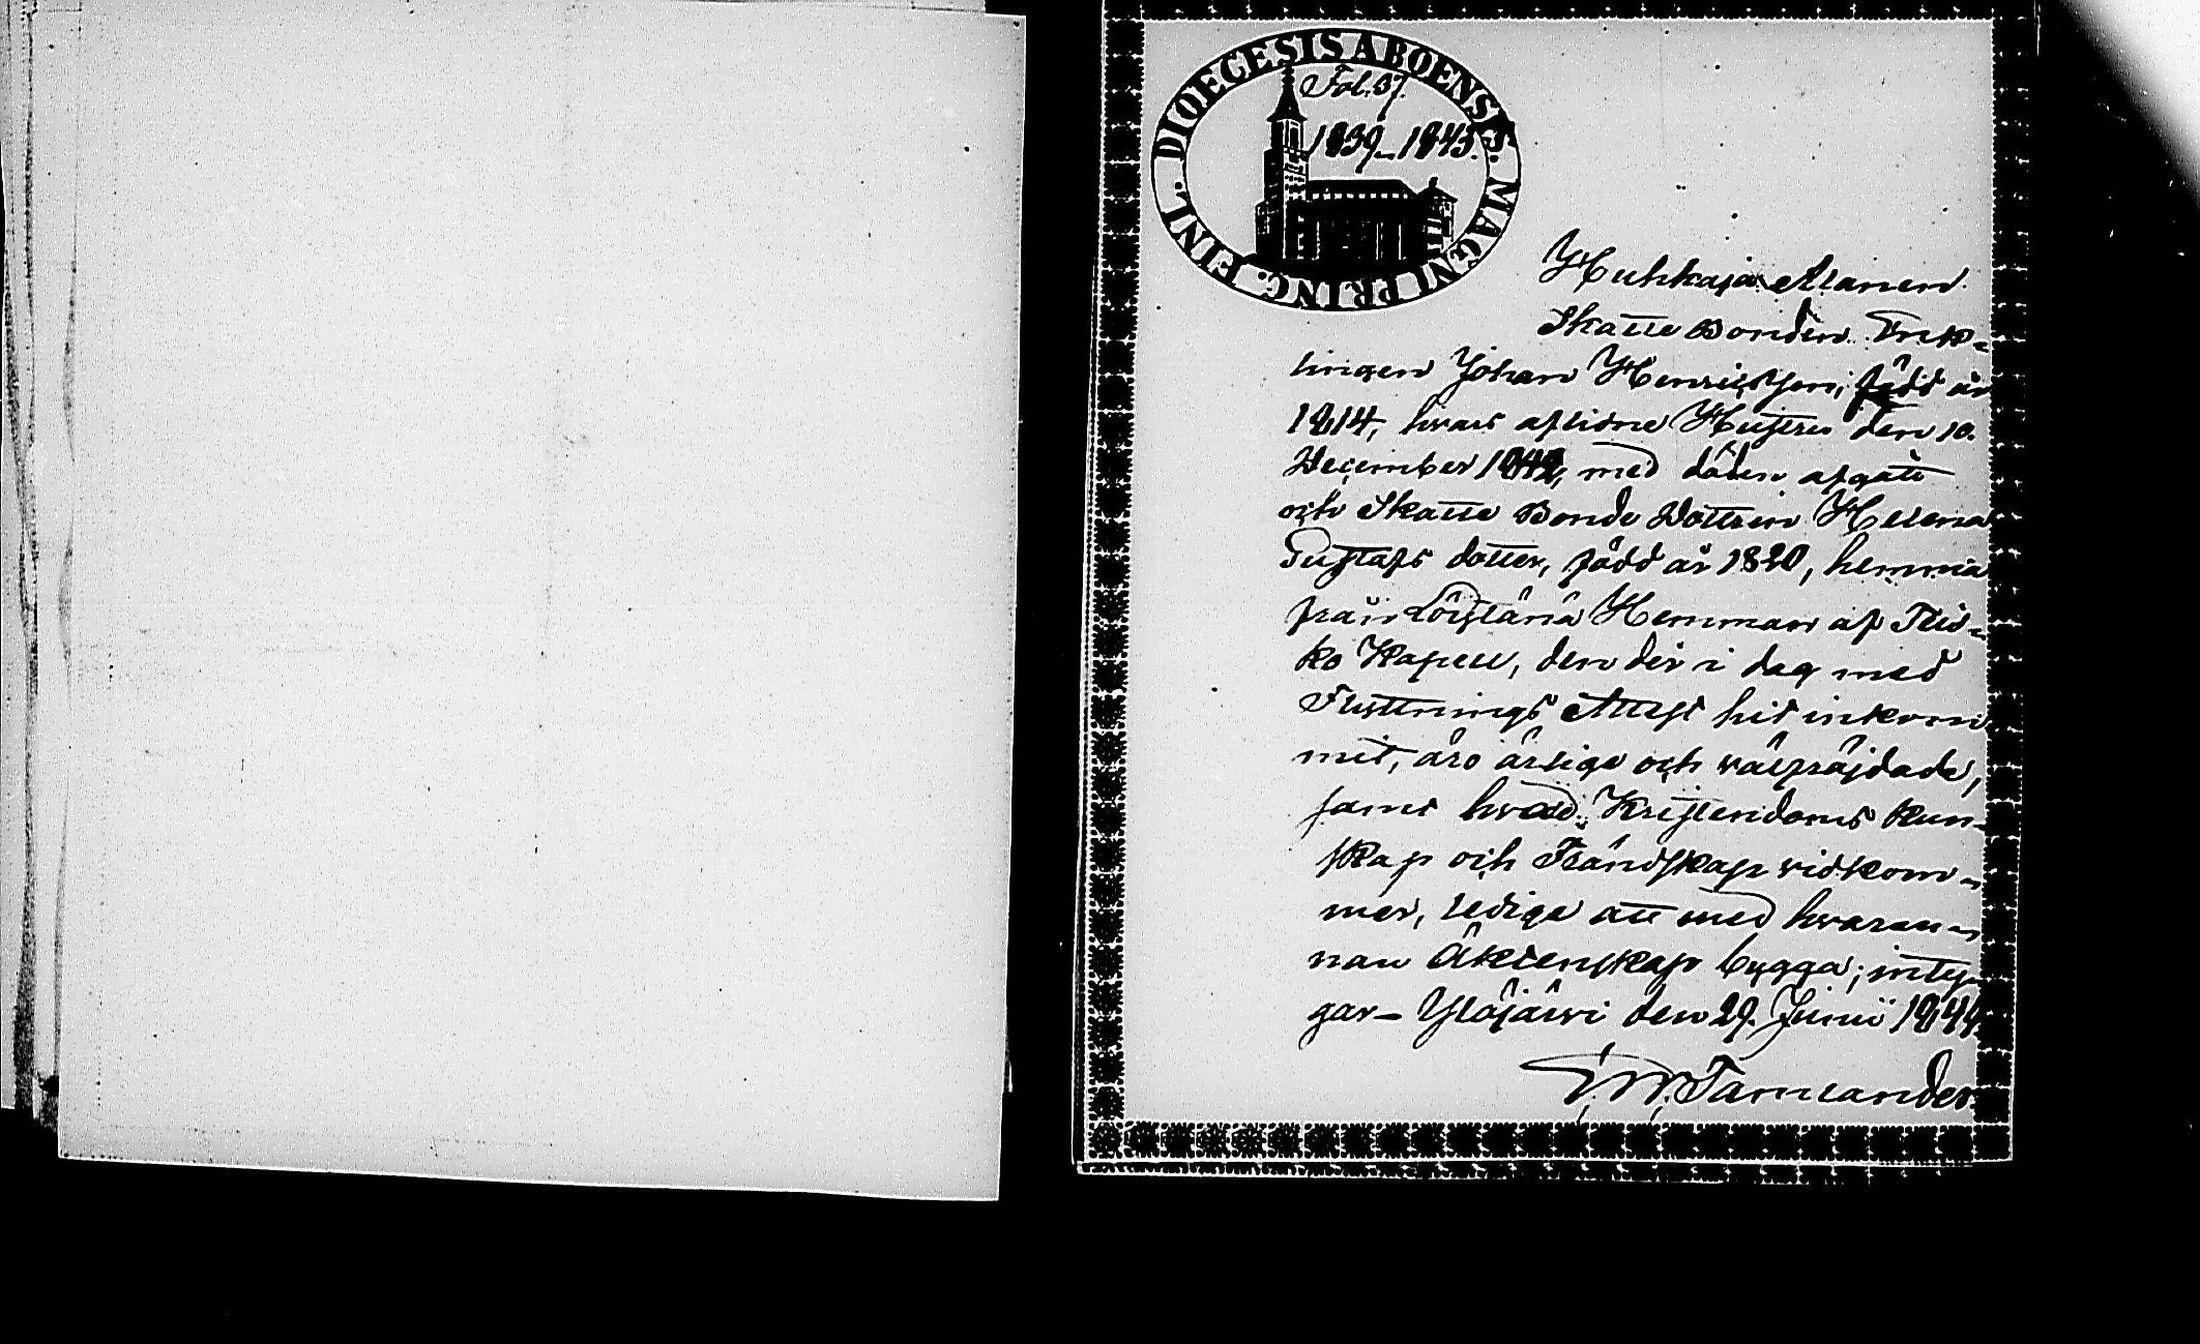 DIOECESIS ABOENSIS. MAGNI PRINC. FINL.
Fol. 37.
1839-1843.
Huhkaja Alanen.
Skatte Bonden Enk-
lingen Johan Henricsson, född år
1814, hvars aflidne Hustru den 10.
December 1842, med döden afgått
och Skatte Bonde Dottren Helena
Gustafs dotter, född år 1820, hemma
från Löytänä Hemman af Teis-
ko Kapell, den der i dag med
Flyttnings Attest hit inkom-
mit, äro ärlige och välfräjdade,
samt hvad Kristendoms Kun-
skap och Frändskap vidkom-
mer, ledige att med hvaran-
nan Äktenskap bygga; intyg-
gar- Ylöjärvi den 29. Junii 1844
Tamlander.